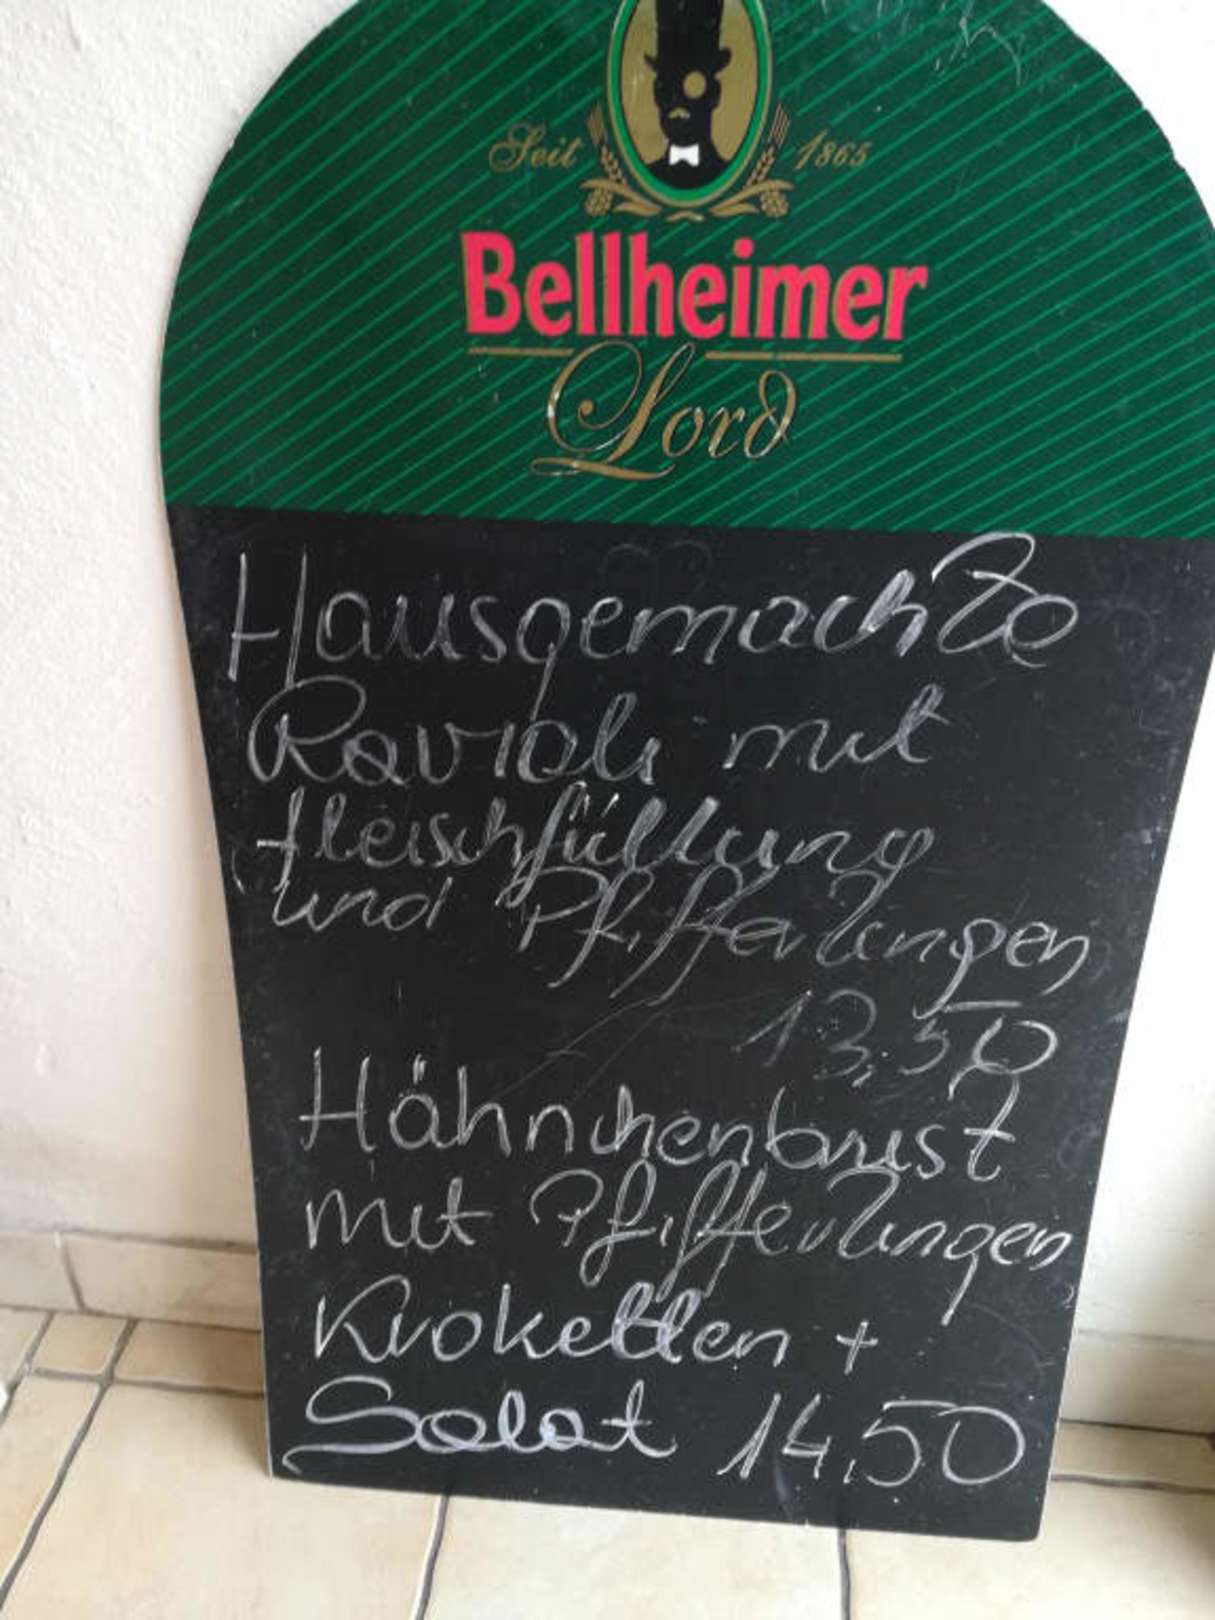 Seit 1865
Bellheimer
Lord
Hausgemachte
Ravioli mit
fleischfüllung
und Pfifferlingen
13,50
Hähnchenbrust
mit Pfifferlingen
Kroketten +
Salat 14,50